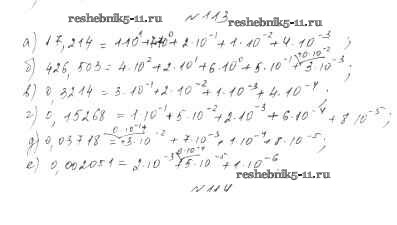 reshebnik5-11.ru
№ 113
reshebnik5-11.ru
а) 17,214 = 1·10¹+7·10⁰+2·10⁻¹+1·10⁻²+4·10⁻³ ;
б) 426,503 = 4·10²+2·10¹+6·10⁰+5·10⁻¹+0·10⁻²+3·10⁻³ ;
в) 0,3214 = 3·10⁻¹+2·10⁻²+1·10⁻³+4·10⁻⁴ ;
г) 0,15268 = 1·10⁻¹+5·10⁻²+2·10⁻³+6·10⁻⁴+8·10⁻⁵ ;
д) 0,03718 = 0·10⁻¹+3·10⁻²+7·10⁻³+1·10⁻⁴+8·10⁻⁵ ;
е) 0,002051 = 2·10⁻³+0·10⁻⁴+5·10⁻⁵+1·10⁻⁶
reshebnik5-11.ru
№ 114